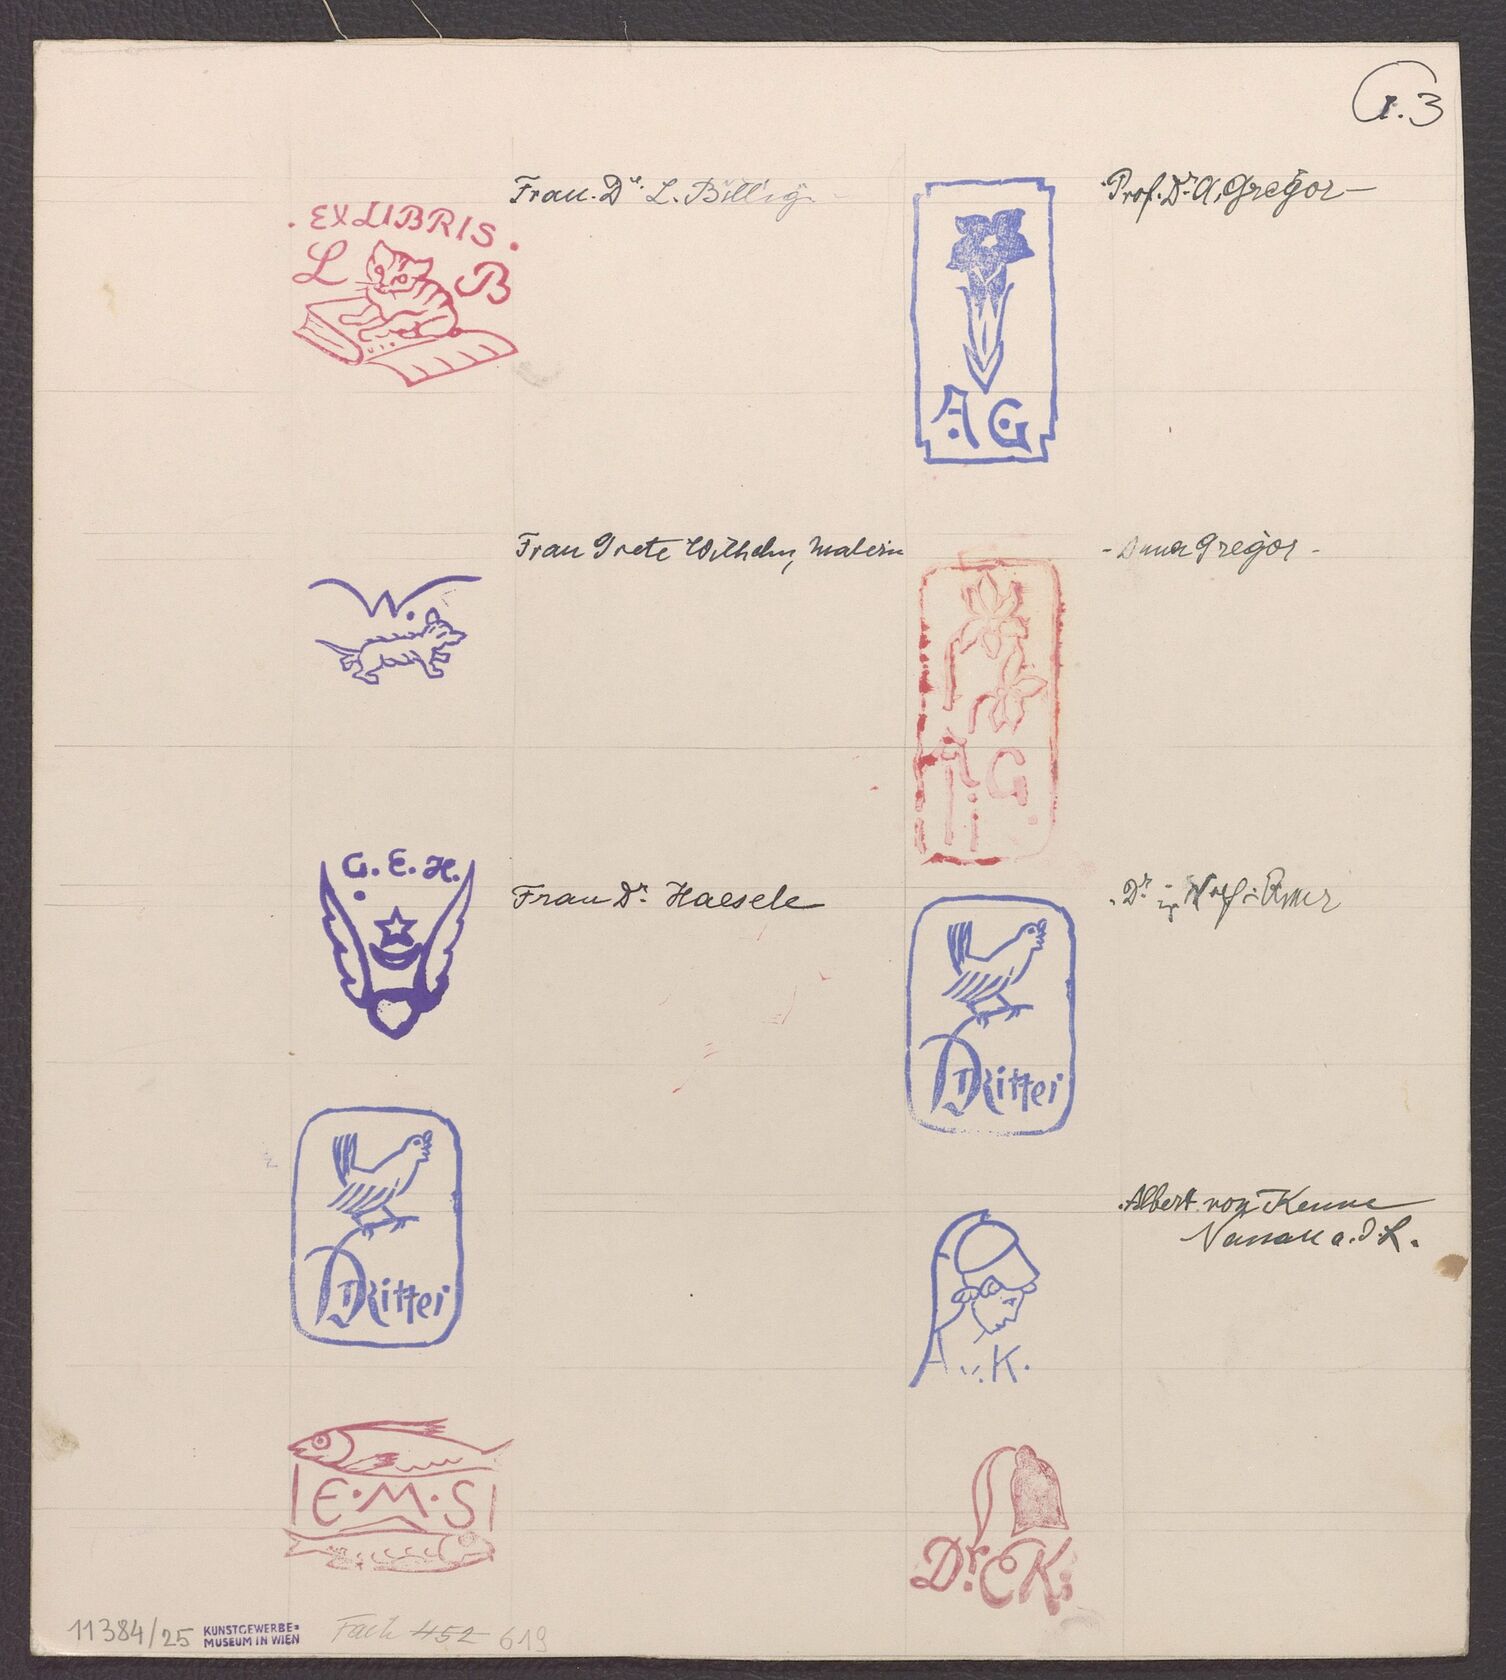 G.3
Frau Dr. L. Billig
· EXLIBRIS ·
L B
Prof. Dr. A. Gregor –
A G
Frau Grete Wilhelm, Malerin
W.
– Anna Gregor –
A G
G. E. H.
Frau Dr. Haesele
Dr.
Dr Ritter
Dr Ritter
Albert von
a. d. L.
A v. K.
E · M · S
Dr. E K.
11384/25 KUNSTGEWERBE=
MUSEUM IN WIEN
Fach 452 619